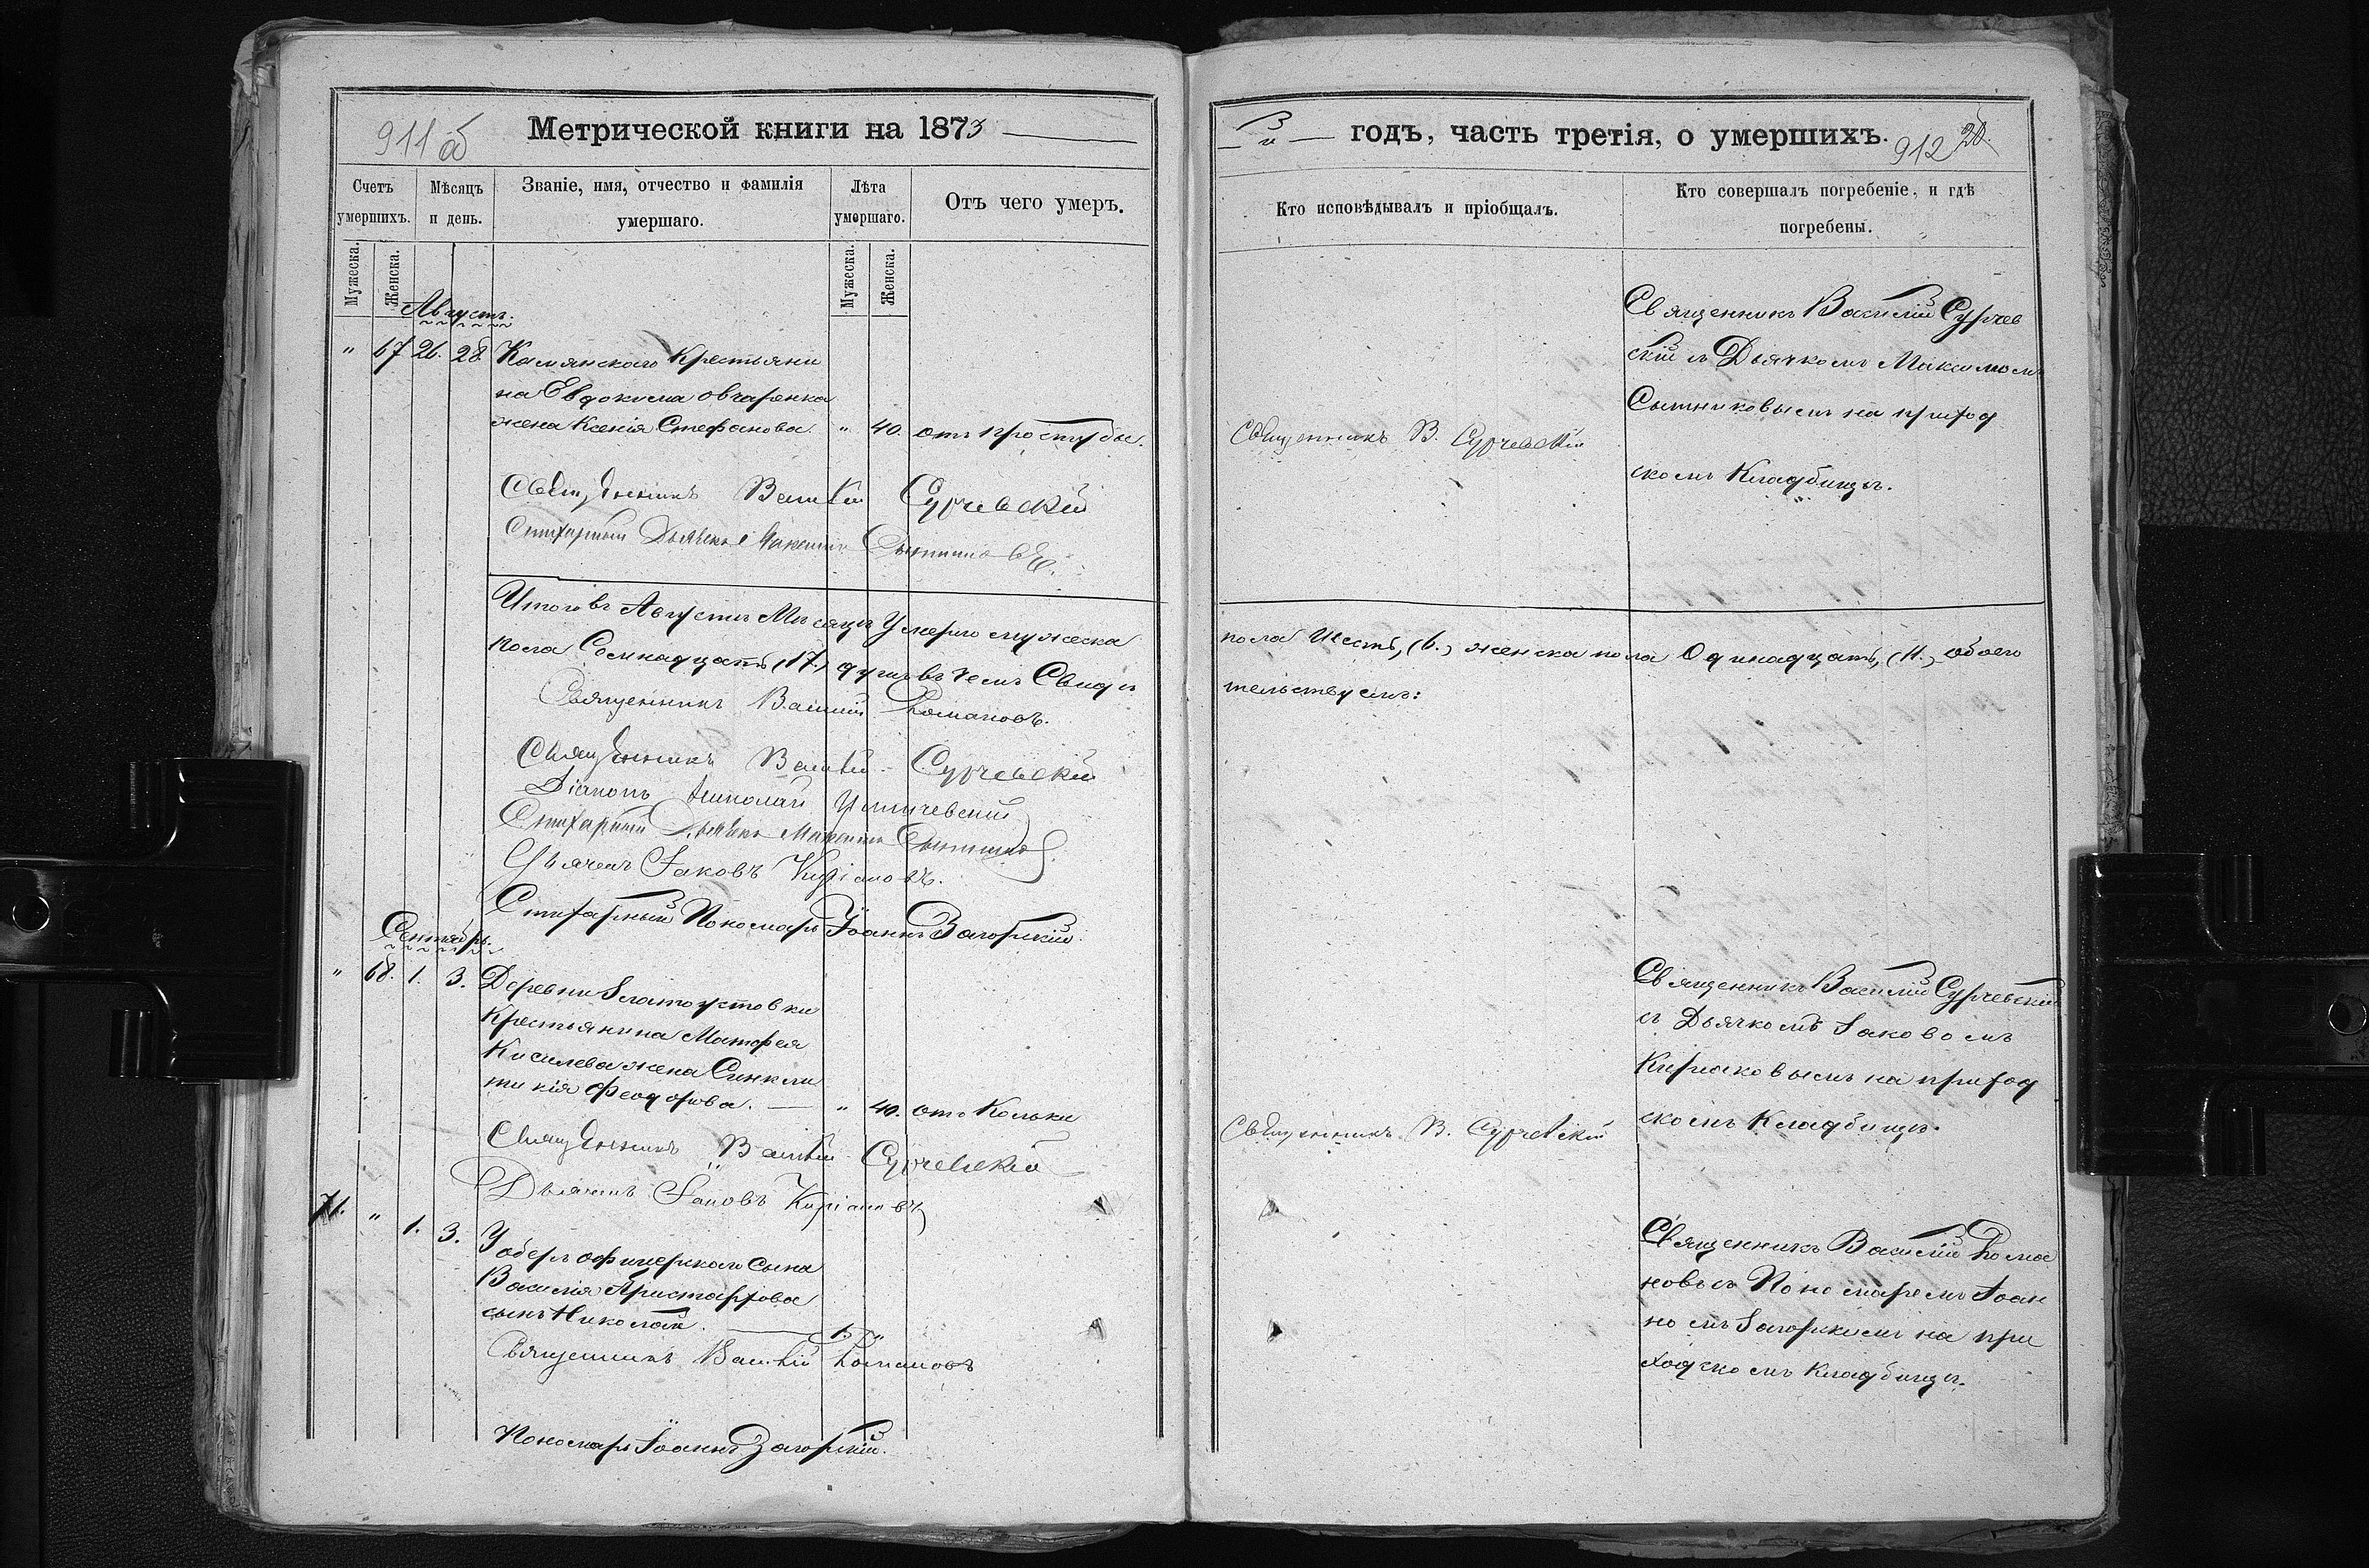 911 об
Метрической книги на 1873
Счетъ умершихъ.
Мѣсяцъ и день.
Званіе, имя, отчество и фамилія умершаго.
Лѣта умершаго.
Отъ чего умеръ.
Мужеска.
Женска.
Мужеска.
Женска.
Августъ.
" 67 26. 28 Камянскаго Крестьяни
на Евдокима Овчаренка
жена Ксенія Стефанова. " 40. отъ простуды.
Священникъ Василій Сурчевскій
Стихарный Дьячекъ Максимъ
Итого въ Августѣ Мѣсяцѣ Умерло мужеска
пола Семнадцать (17.) душъ въ чемъ Свидѣ
Священникъ Василій Романовъ.
Священникъ Василій Сурчевскій
Діаконъ Николай
Стихарный Дьячекъ Максимъ
Дьячекъ Іаковъ Киріаковъ.
Стихарный Пономарь Іоаннъ Загорскій.
Сентябрь.
" 68. 1. 3. Деревни Златоустовки
Крестьянина Матфея
Киселева жена Синкли
тикія Феодорова. " 40. отъ Кольки
Священникъ Василій Сурчевскій
Дьячекъ Іаковъ Киріаковъ
71. " 1. 3. Уоберъ офицерскаго сына
Василія Аристархова
сынъ Николай. 1. "
Священникъ Василій Романовъ
Пономарь Іоаннъ Загорскій.
3
й годъ, часть третія, о умершихъ.
912 20.
Кто исповѣдывалъ и пріобщалъ.
Кто совершалъ погребеніе, и гдѣ погребены.
Священникъ Василій Сурчев
скій съ Дьячкомъ Максимомъ
Сытниковымъ на приход
скомъ Кладбищѣ.
Священникъ В. Сурчевскій
пола Шесть, (6.) женска пола Одинадцать, (11.) обоего
тельствуемъ:
Священникъ Василій Сурчевскій
съ Дьячкомъ Іаковомъ
Киріаковымъ на приход
скомъ Кладбищѣ.
Священникъ В. Сурчевскій
Священникъ Василій Рома
новъ съ Пономаремъ Іоан
номъ Загорскимъ на при
ходскомъ Кладбищѣ.